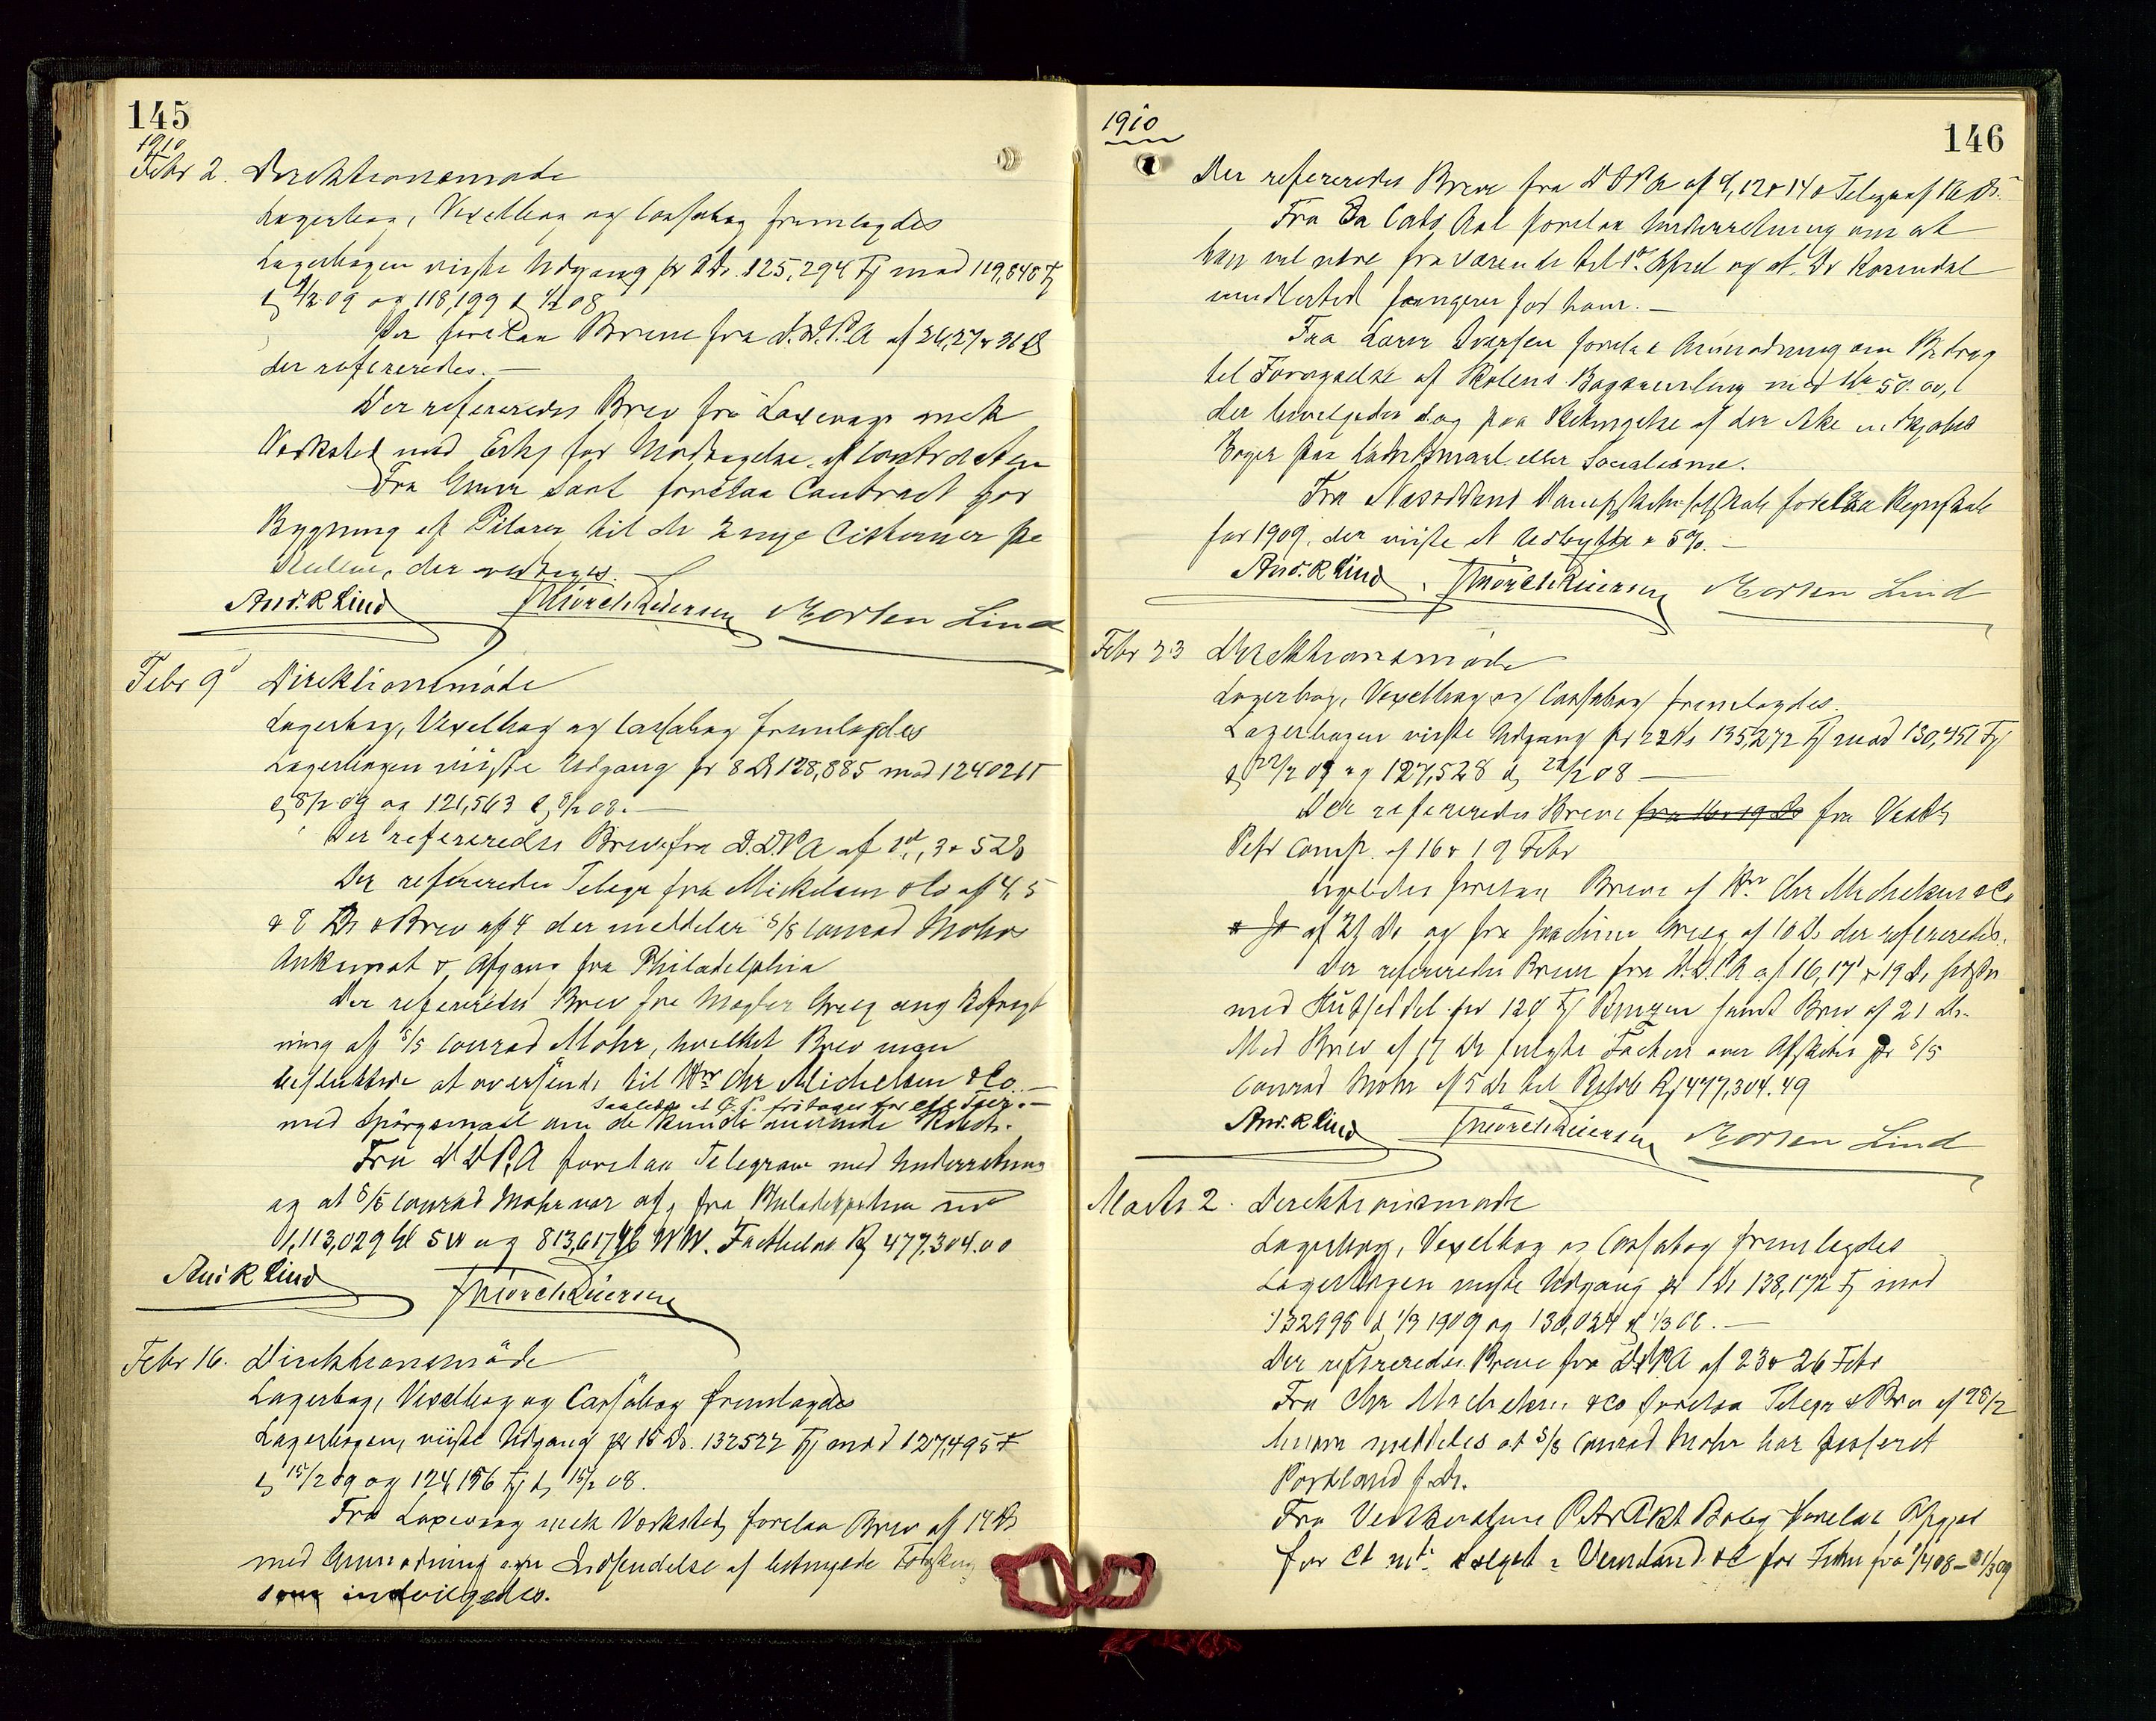 145
1910
Febr 2. Direktionsmøde
Lagerbog, Vexelbog og Cassabog fremlagdes
Lagerbogen viiste Udgang pr 1 Ds. 125,294 Fj mod 119,840 Fj
1/2 09 og 118,199 1/2 08
Der forelaa Breve fra D.D.P.A af 26, 27 & 31 Ds
der refereredes.
Der refereredes Brev fra Laxevaags mek
Værksted med Erkj for Modtagelse af Contracten
Fra Einar Sant forelaa Contract for
Bygning af Pilarer til de 2 nye Cisterner pa
der vedtoges.
And. R Lind Mørch Reiersen Morten Lind
Febr 9d Direktionsmøde
Lagerbog, Vexelbog og Cassabog fremlagdes
Lagerbogen viiste Udgang pr 8 Ds 128,885 mod 124026 F
8/2 09 og 121,563 8/2 08.
Der refereredes Breve fra D.D.P.A af 1st, 3 & 5 Ds
Der refereredes Telegr fra Mickelsen & Co af 4, 5
& 8 Ds & Brev af 4 der meddeler S/S Conrad Mohrs
Ankomst & Afgang fra Philadelphia
Der refereredes Brev fra Mægler Grieg ang Befragt
ning af S/S Conrad Mohr, hvilket Brev man
besluttede at oversende til Hrr Chr Michelsen & Co.
saaledes at fritages for
med Spörgsmaal om de kunde
Fra D D P A forelaa Telegram med Underretning
og at S/S Conrad Mohr var afg fra Philadelphia med
1,113,029 Gl SW og 813,617 WW. Facturbl 477,304.00
And R Lind Mørch Reiersen
Febr 16. Direktionsmøde
Lagerbog, Vexelbog og Cassabog fremlagdes
Lagerbogen, viiste Udgang pr 15 Ds. 132522 Fj mod 127,495 F
15/2 09 og 124,156 Fj 15/2 08.
Fra Laxevaag mek Værksted, forelaa Brev af 14 Ds
med Anmodning om Indsendelse af betingede
som indvilgedes.
1910
146
Der refereredes Breve fra D D P A af 9, 12 & 14 & Telegr af 16 Ds.
Fra Aal forelaa Underretning om at
han vil være fraværende til 1st April og at Dr Rosendal
imidlertid fungerer for ham.
Fra Lærer Iversen forelaa Anmodning om Bidrag
til Forøgelse af Skolens Bogsamling med Kr 50.00,
der bevilgedes dog paa Betingelse af der ikke indkjøbes
Bøger paa Landsmaal eller Socialisme.
Fra Næsoddens Dampskibsselskab forelaa Regnskab
for 1909, der viiste et Udbytte & 5%.
And. R Lind Mørch Reiersen Morten Lind
Febr 23 Direktionsmøde
Lagerbog, Vexelbog og Cassabog fremlagdes.
Lagerbogen viiste Udgang pr 22 Ds 135,272 Fj mod 130,451 Fj
22/2 09 og 127,528 22/2 08
Der refereredes Breve fra 16 & 19 Ds fra Vestl
Petr Comp. af 16 & 19 Febr
ligeledes forelaa Breve af Hrr Chr Michelsen & Co
af 21 Ds og fra Joachim Grieg af 10 Ds der refereredes.
Der refereredes Breve fra D.D.P.A af 16, 17 & 19 Ds
med Slutseddel for 120 Fj Benzin samt Brev af 21 Ds.
Med Brev af 17 Ds fulgte Factura over Afskibn pr S/S
Conrad Mohr af 5 Ds til Beløb 477,304.49
And. R Lind Mørch Reiersen Morten Lind
Marts 2. Direktionsmøde
Lagerbog, Vexelbog og Cassabog fremlagdes
Lagerbogen viiste Udgang pr 1 Ds 138,172 Fj mod
132998 1/3 1909 og 130,024 1/3 08.
Der refereredes Breve fra DDPA af 23 & 26 Febr
Fra Chr Michelsen & Co forelaa Telegr & Brev af 28/2
hvori meddeles at S/S Conrad Mohr har passeret
Portland
Fra Vestlandske Petr Akt Bolag forelaa Opgjør
for Værmland for Tiden fra 1/4 08 - 31/3 09